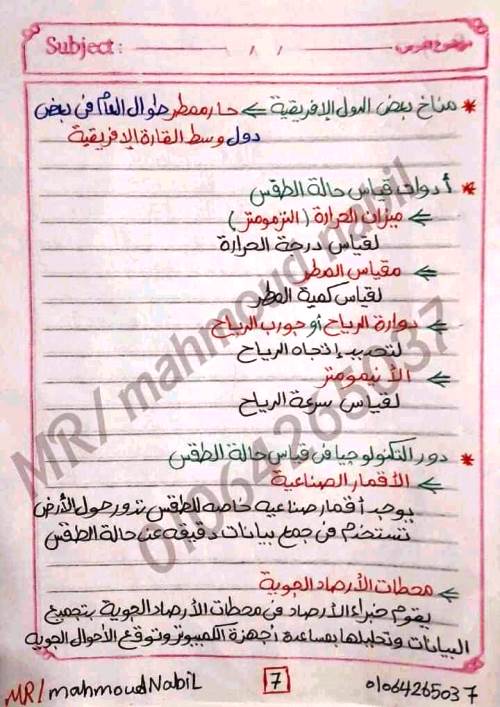 Subject: / / موضوع الدرس
* مناخ بعض الدول الإفريقية ⇐ حار ممطر طوال العام فى بعض
دول وسط القارة الإفريقية
* أدوات قياس حالة الطقس
⇐ ميزان الحرارة (الترمومتر)
لقياس درجة الحرارة
⇐ مقياس المطر
لقياس كمية المطر
⇐ دوارة الرياح أو جورب الرياح
لتحديد إتجاه الرياح
⇐ الأنيمومتر
لقياس سرعة الرياح
* دور التكنولوجيا فى قياس حالة الطقس
⇐ الأقمار الصناعية
يوجد أقمار صناعيه خاصه للطقس تدور حول الأرض
تستخدم فى جمع بيانات دقيقه عن حالة الطقس
⇐ محطات الأرصاد الجوية
يقوم خبراء الأرصاد فى محطات الأرصاد الجوية بتجميع
البيانات وتحليلها بمساعدة أجهزة الكمبيوتر وتوقع الأحوال الجويه
MR/ mahmoud Nabil 7 01064265037
MR/ mahmoud nabil
01064265037